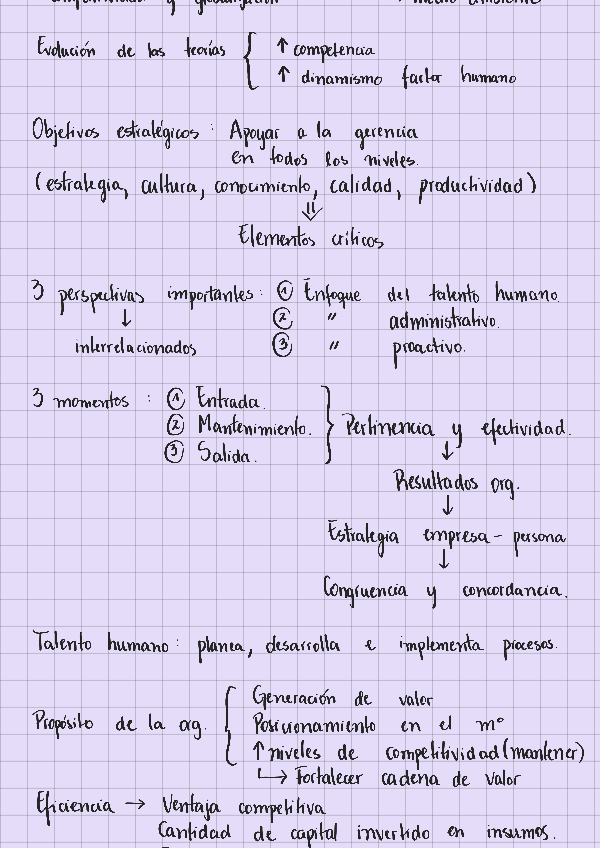 y globalización medio ambiente
Evolución de las teorías { ↑ competencia
↑ dinamismo factor humano
Objetivos estratégicos : Apoyar a la gerencia
en todos los niveles.
(estrategia, cultura, conocimiento, calidad, productividad)
⇓
Elementos críticos
3 perspectivas importantes : ① Enfoque del talento humano.
↓ ② " administrativo.
interrelacionados ③ " proactivo.
3 momentos : ① Entrada.
② Mantenimiento. } Pertinencia y efectividad.
③ Salida. ↓
Resultados org.
↓
Estrategia empresa - persona
↓
Congruencia y concordancia.
Talento humano : planea, desarrolla e implementa procesos.
Generación de valor
Propósito de la org. { Posicionamiento en el mº
↑ niveles de competitividad (mantener)
↳ Fortalecer cadena de valor
Eficiencia → Ventaja competitiva
Cantidad de capital invertido en insumos.